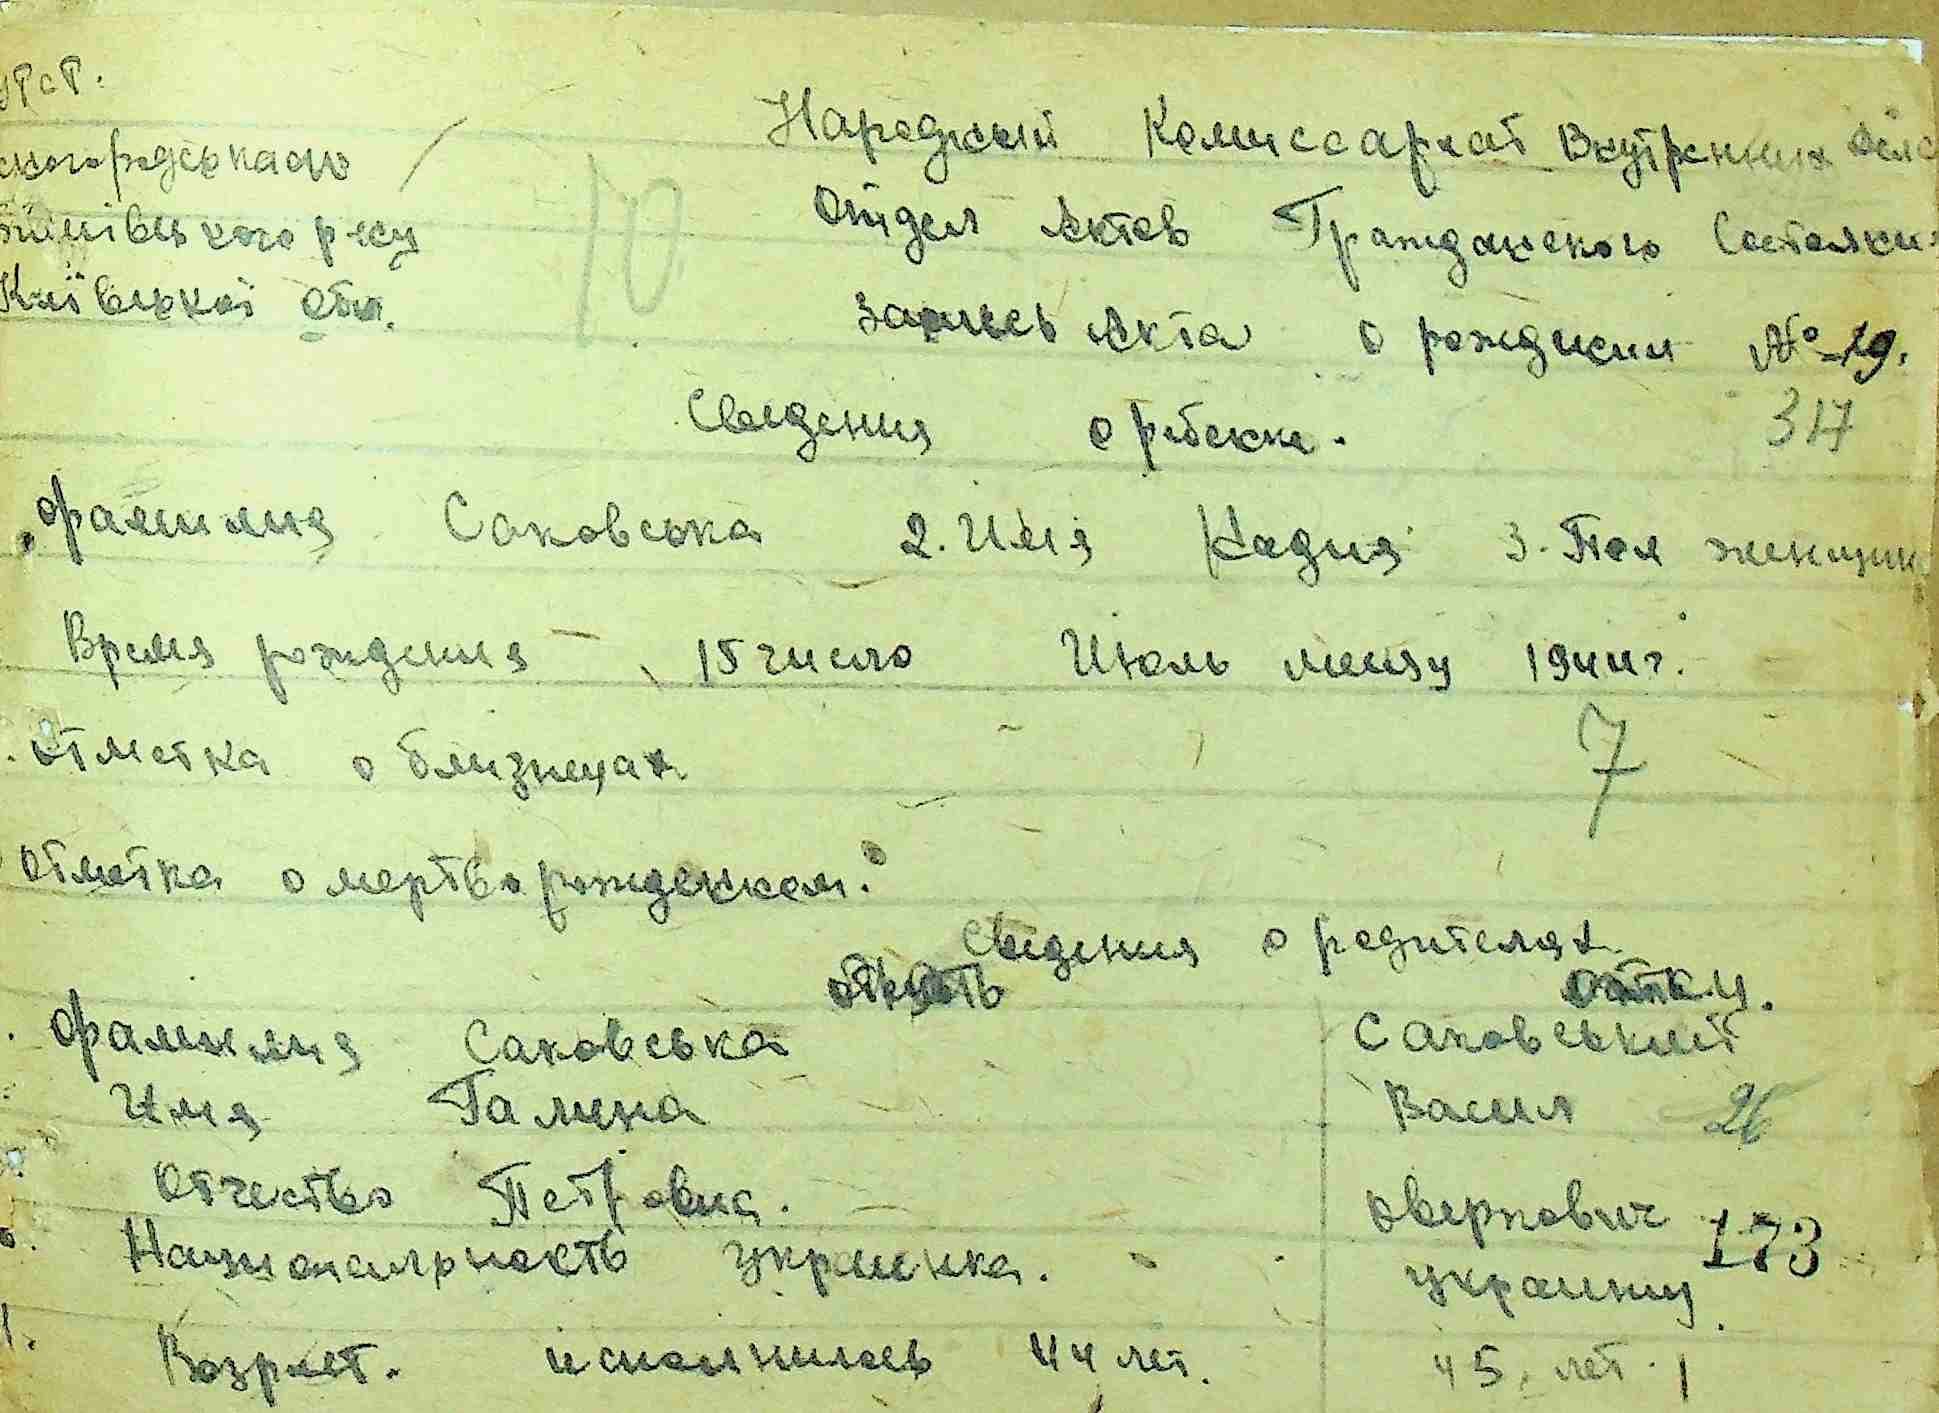 УРСР.
Київської обл.
10
Народный Комиссариат Внутренних дел
Отдел Актов Гражданского Состояни
Запись Акта о рождении №-19.
317
Сведения о ребенке.
Фамилия Саковська 2. Имя Надия 3. Пол женщин
Время рождения - 15 число Июль месяц 1944 г.
7
Отметка о близнецах
Отметка о мертворожденном.
Сведения о родителях
Фамилия Саковська Саковський
Имя Галина Васил 26
Отчество Петровна. Оверкович
173
Национальность украинка. украинец.
1. Возраст. исполнилось 44 лет. 45 лет.